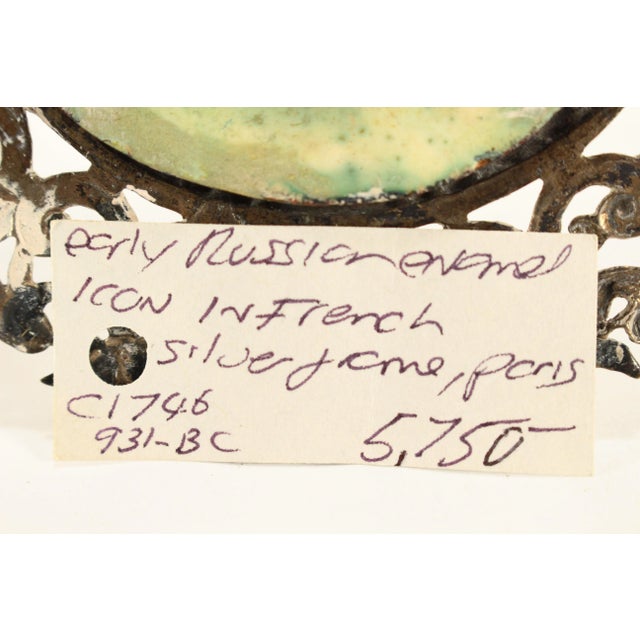 early Russian enamel
ICON IN French
silver frame, paris
C1746
931-BC
5,750